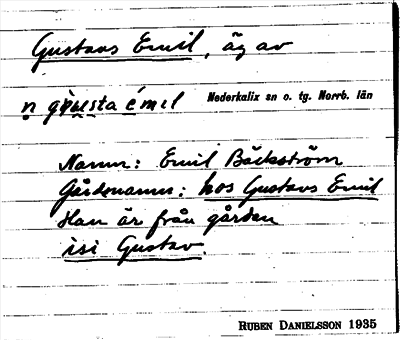 Gustavs Emil, äg av
Nederkalix sn o. tg. Norrb. län
Namn: Emil Bäckström
Gårdsnamn: hos Gustavs Emil
Han är från gården
isi Gustav.
RUBEN DANIELSSON 1935